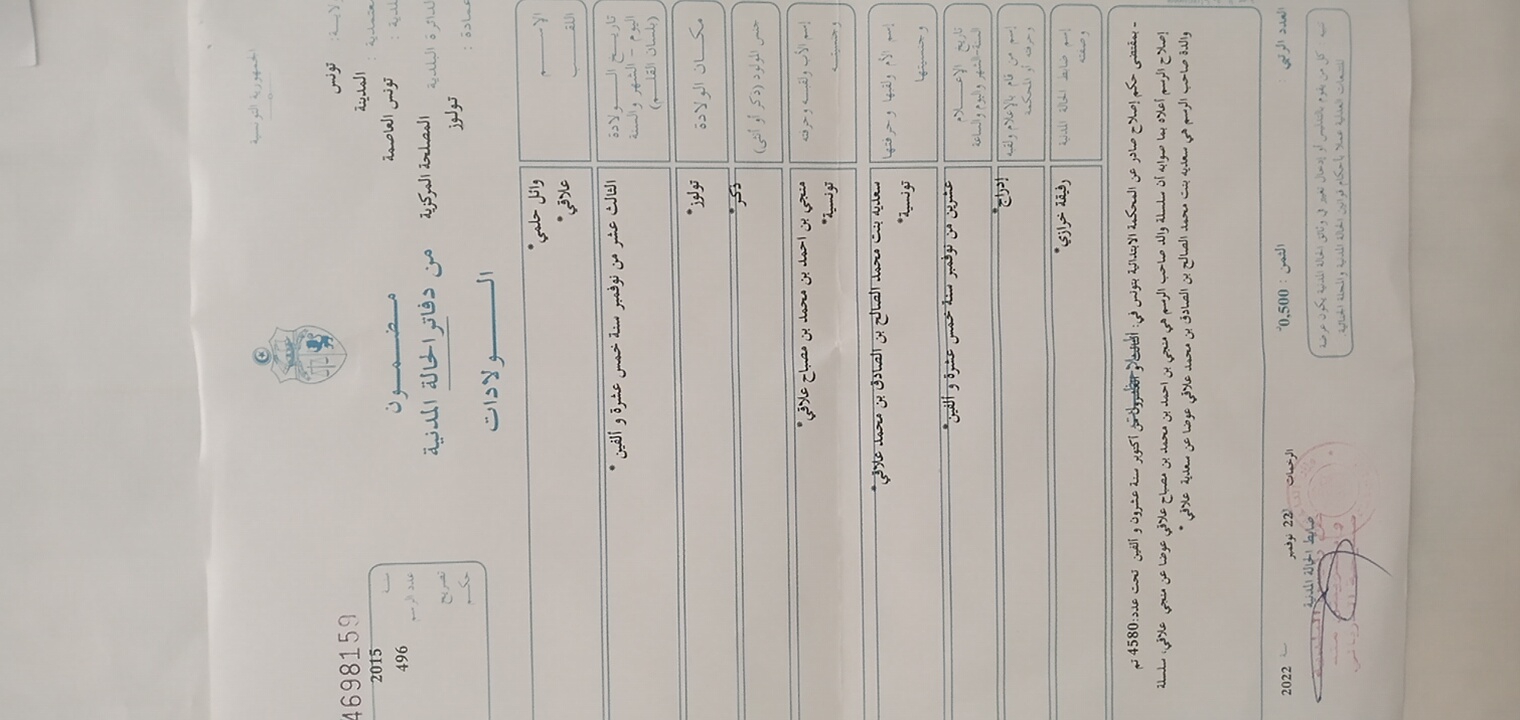 الجمهورية التونسية
ولاية: تونس
معتمدية: المدينة
بلدية: تونس العاصمة
الدائرة البلدية المصلحة المركزية
عمادة: تولوز
مضمون
من دفاتر الحالة المدنية
الولادات
4698159
سنة 2015
عدد الرسم 496
تصريح
حكم
الاسم وائل حلمي*
اللقب علاقي*
تاريخ الولادة
اليوم - الشهر والسنة
(بلسان القلم)
الثالث عشر من نوفمبر سنة خمس عشرة و ألفين*
مكان الولادة تولوز*
جنس المولود (ذكر أو أنثى) ذكر*
إسم الأب ولقبه وحرفته منجي بن احمد بن محمد بن مصباح علاقي*
وجنسيته تونسية*
إسم الأم ولقبها وحرفتها سعديه بنت محمد الصالح بن الصادق بن محمد علاقي*
وجنسيتها تونسية*
تاريخ الإعلام
السنة والشهر واليوم والساعة
عشرين من نوفمبر سنة خمس عشرة و ألفين*
إسم من قام بالإعلام ولقبه
وحرفته أو المحكمة
إدراج*
إسم ضابط الحالة المدنية
وصفته
رفيقة خرازي*
- بمقتضى حكم إصلاح صادر عن المحكمة الابتدائية بتونس في: أكتوبر سنة عشرون و ألفين تحت عدد:4580 تم
إصلاح الرسم أعلاه بما صوابه أن سلسلة والد صاحب الرسم هي منجي بن احمد بن محمد بن مصباح علاقي عوضا عن منجي علاقي، سلسلة
والدة صاحب الرسم هي سعديه بنت محمد الصالح بن الصادق بن محمد علاقي عوضا عن سعدية علاقي*
العدد الرتبي :
الثمن : 0,500د
الرحمات 22 نوفمبر سنة 2022
ضابط الحالة المدنية
كل من يقوم بالتدليس أو إدخال تغيير في وثائق الحالة المدنية يكون عرضة
للتتبعات العدلية عملا بأحكام قوانين الحالة المدنية والمجلة الجنائية.